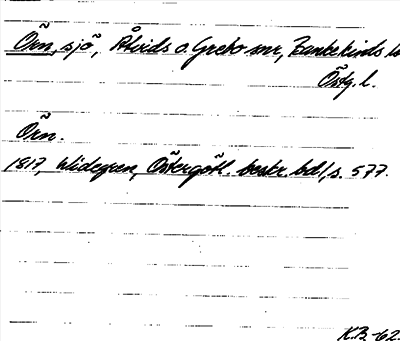 Örn, sjö, Åtvids o. Grebo snr, Bankekinds
Östg. l.
Örn.
1817, Widegren, Östergötl. beskr. bd 1, s. 577.
K.B. -62.